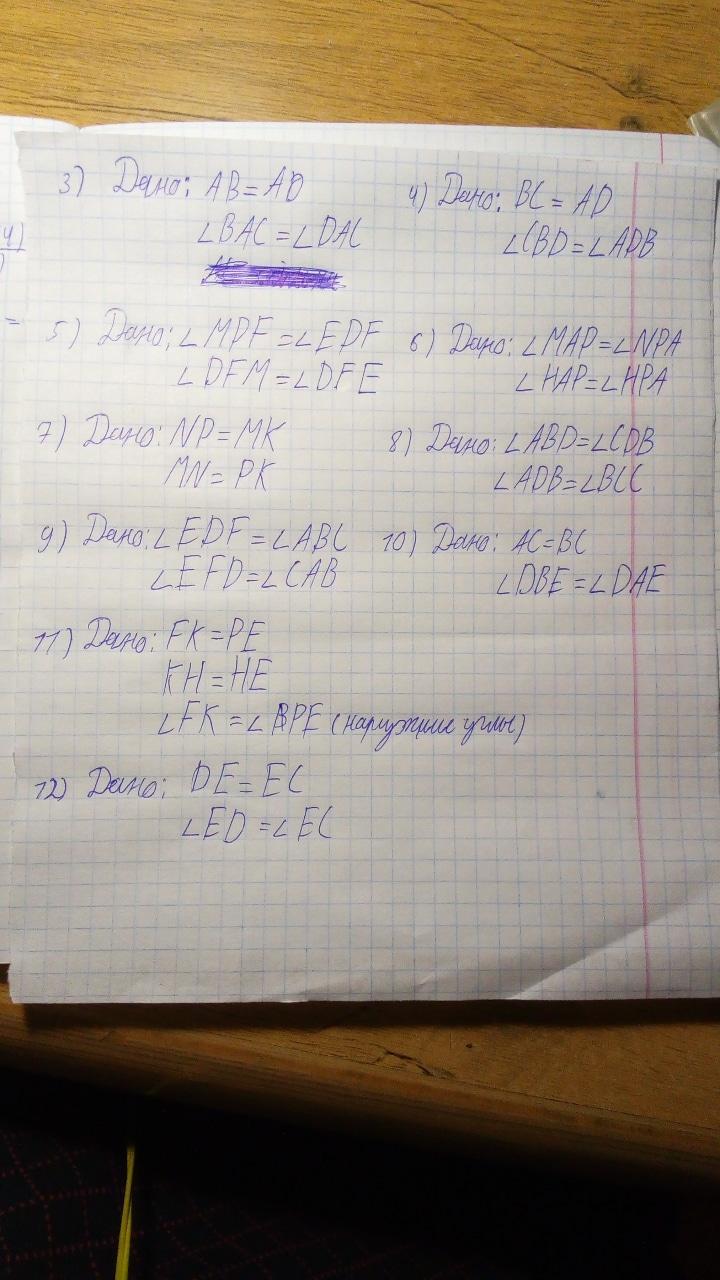 3) Дано: AB = AD
∠BAC = ∠DAC
4) Дано: BC = AD
∠CBD = ∠ADB
5) Дано: ∠MDF = ∠EDF
∠DFM = ∠DFE
6) Дано: ∠MAP = ∠NPA
∠HAP = ∠HPA
7) Дано: NP = MK
MN = PK
8) Дано: ∠ABD = ∠CDB
∠ADB = ∠BCC
9) Дано: ∠EDF = ∠ABC
∠EFD = ∠CAB
10) Дано: AC = BC
∠DBE = ∠DAE
11) Дано: FK = PE
KH = HE
∠FK = ∠BPE (наружние углы)
12) Дано: DE = EC
∠ED = ∠EC